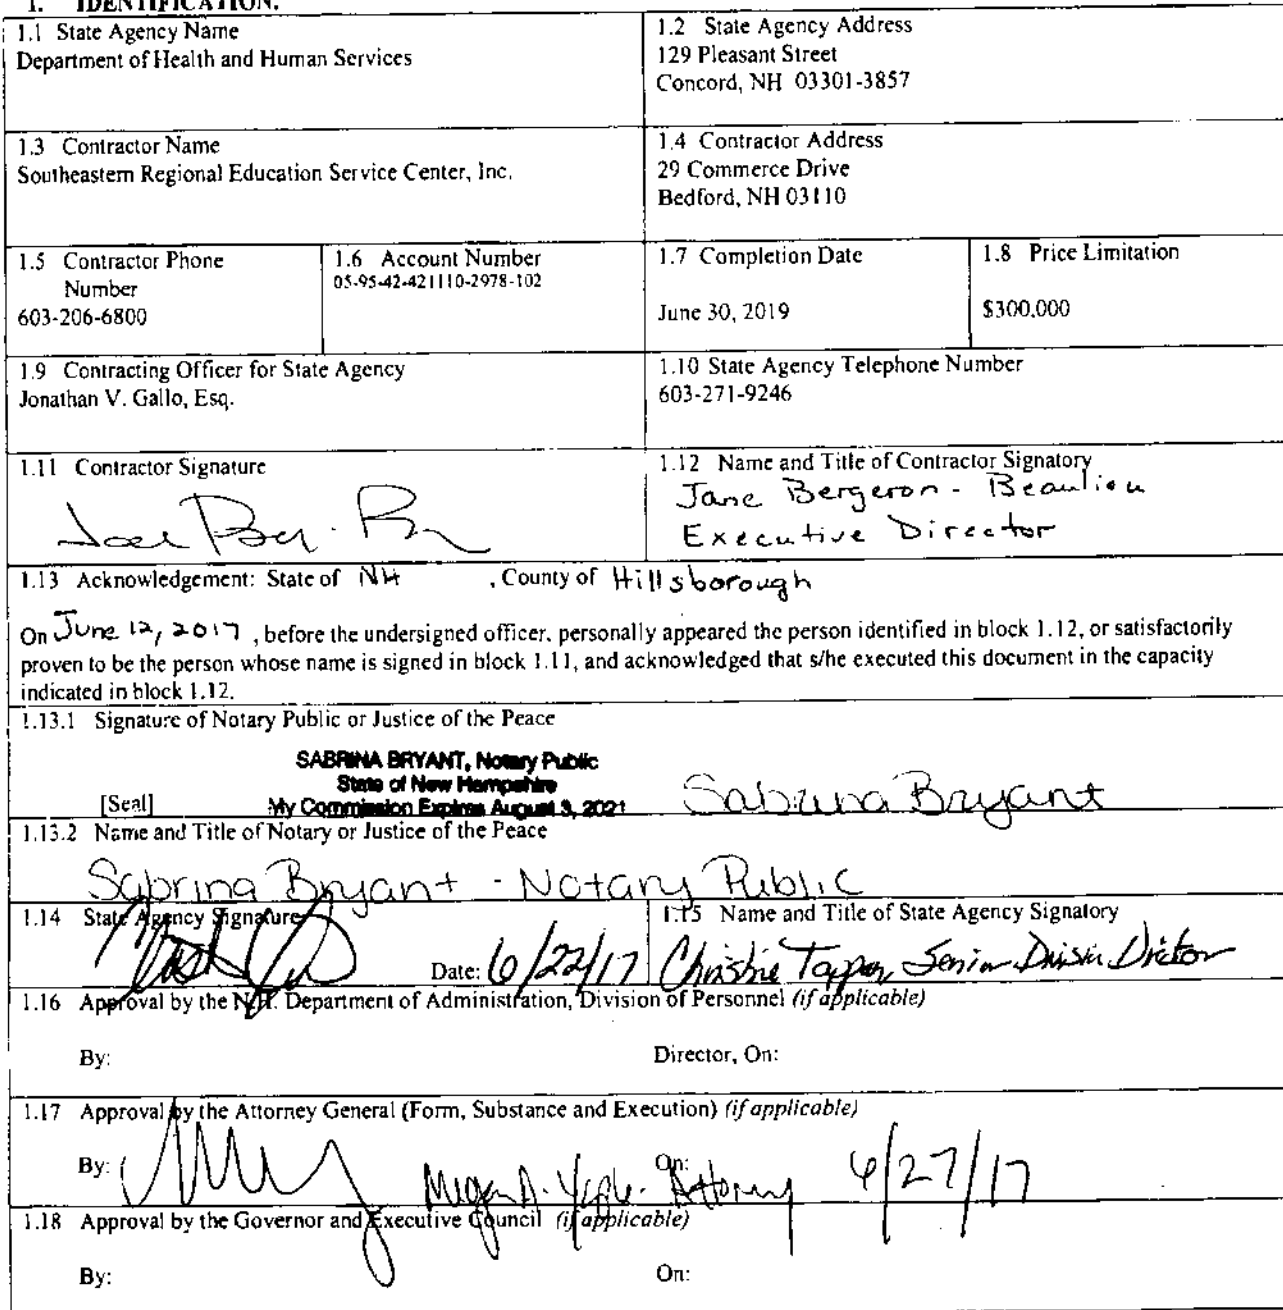 1. IDENTIFICATION.
1.1 State Agency Name
Department of Health and Human Services
1.2 State Agency Address
129 Pleasant Street
Concord, NH 03301-3857
1.3 Contractor Name
Southeastern Regional Education Service Center, Inc.
1.4 Contractor Address
29 Commerce Drive
Bedford, NH 03110
1.5 Contractor Phone
Number
603-206-6800
1.6 Account Number
05-95-42-421110-2978-102
1.7 Completion Date
June 30, 2019
1.8 Price Limitation
$300,000
1.9 Contracting Officer for State Agency
Jonathan V. Gallo, Esq.
1.10 State Agency Telephone Number
603-271-9246
1.11 Contractor Signature
1.12 Name and Title of Contractor Signatory
Jane Bergeron - Beaulieu
Executive Director
1.13 Acknowledgement: State of NH , County of Hillsborough
On June 12, 2017 , before the undersigned officer, personally appeared the person identified in block 1.12, or satisfactorily
proven to be the person whose name is signed in block 1.11, and acknowledged that s/he executed this document in the capacity
indicated in block 1.12.
1.13.1 Signature of Notary Public or Justice of the Peace
SABRINA BRYANT, Notary Public
State of New Hampshire
[Seal] My Commission Expires August 3, 2021
Sabrina Bryant
1.13.2 Name and Title of Notary or Justice of the Peace
Sabrina Bryant - Notary Public
1.14 State Agency Signature
Date: 6/22/17
1.15 Name and Title of State Agency Signatory
Christine Tappan, Senior Division Director
1.16 Approval by the N.H. Department of Administration, Division of Personnel (if applicable)
By: Director, On:
1.17 Approval by the Attorney General (Form, Substance and Execution) (if applicable)
By: Megan A. Attorney On: 6/27/17
1.18 Approval by the Governor and Executive Council (if applicable)
By: On: